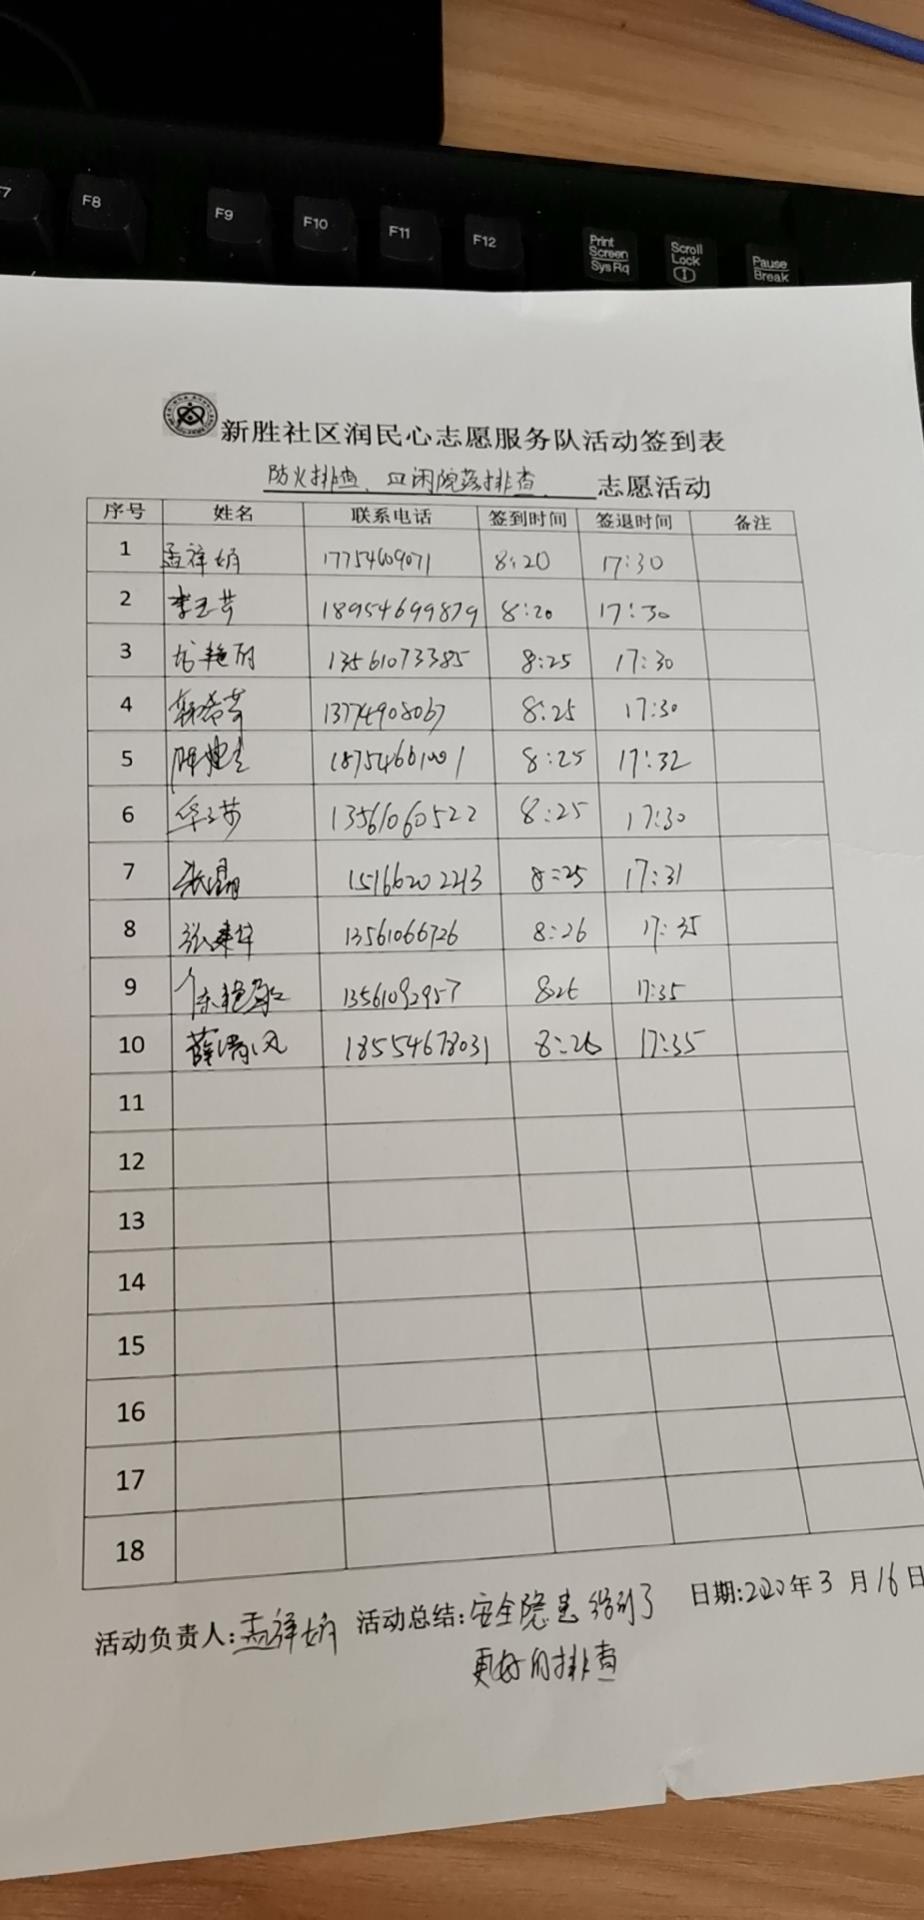 F7 F8 F9 F10 F11 F12 Print Screen SysRq Scroll Lock Pause Break
新胜社区润民心志愿服务队活动签到表
防火排查、闲院落排查、 志愿活动
序号 姓名 联系电话 签到时间 签退时间 备注
1 孟祥娟 17754609071 8:20 17:30
2 李玉芳 18954699879 8:20 17:30
3 艳丽 13561073385 8:25 17:30
4 13774908067 8:25 17:30
5 8:25 17:32
6 华 13561060522 8:25 17:30
7 张晶 15166202213 8:25 17:31
8 张建华 13561066726 8:26 17:35
9 陈艳 13561092957 8:26 17:35
10 薛清风 18554678031 8:26 17:35
11
12
13
14
15
16
17
18
活动负责人:孟祥娟 活动总结:安全隐患得到了 日期:2020年3月16日
更好的排查